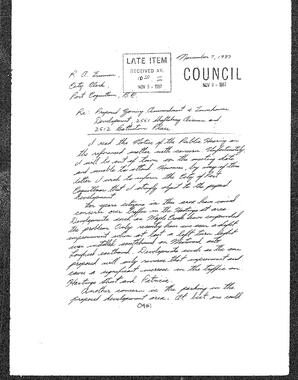 November 7, 1987
LATE ITEM
RECEIVED AT
NOV 9 - 1987
COUNCIL
NOV 9 1987
City Clerk,
Port Coquitlam, B.C.
Re: Proposed Zoning Amendment & Townhouse
Development, 2561 Avenue and
2512 Place
I read the Notice of the Public Hearing on
the referenced matter with concern. Unfortunately
I will be out of town on the meeting date
and unable to attend. However, by way of this
letter I wish to inform the City of Port
Coquitlam that I strongly object to the proposed
development.
For years citizens in this area have voiced
concern over traffic in the Hastings st area.
Developments such as Maple Creek have compounded
the problem. Only recently have we seen a slight
improvement when at last a left turn light
was installed southbound on
Lougheed eastbound. Developments such as the one
proposed will only reverse that improvement and
cause a significant increase in the traffic on
Hastings street and Patricia.
Another concern is the parking in the
proposed development area. At best one could